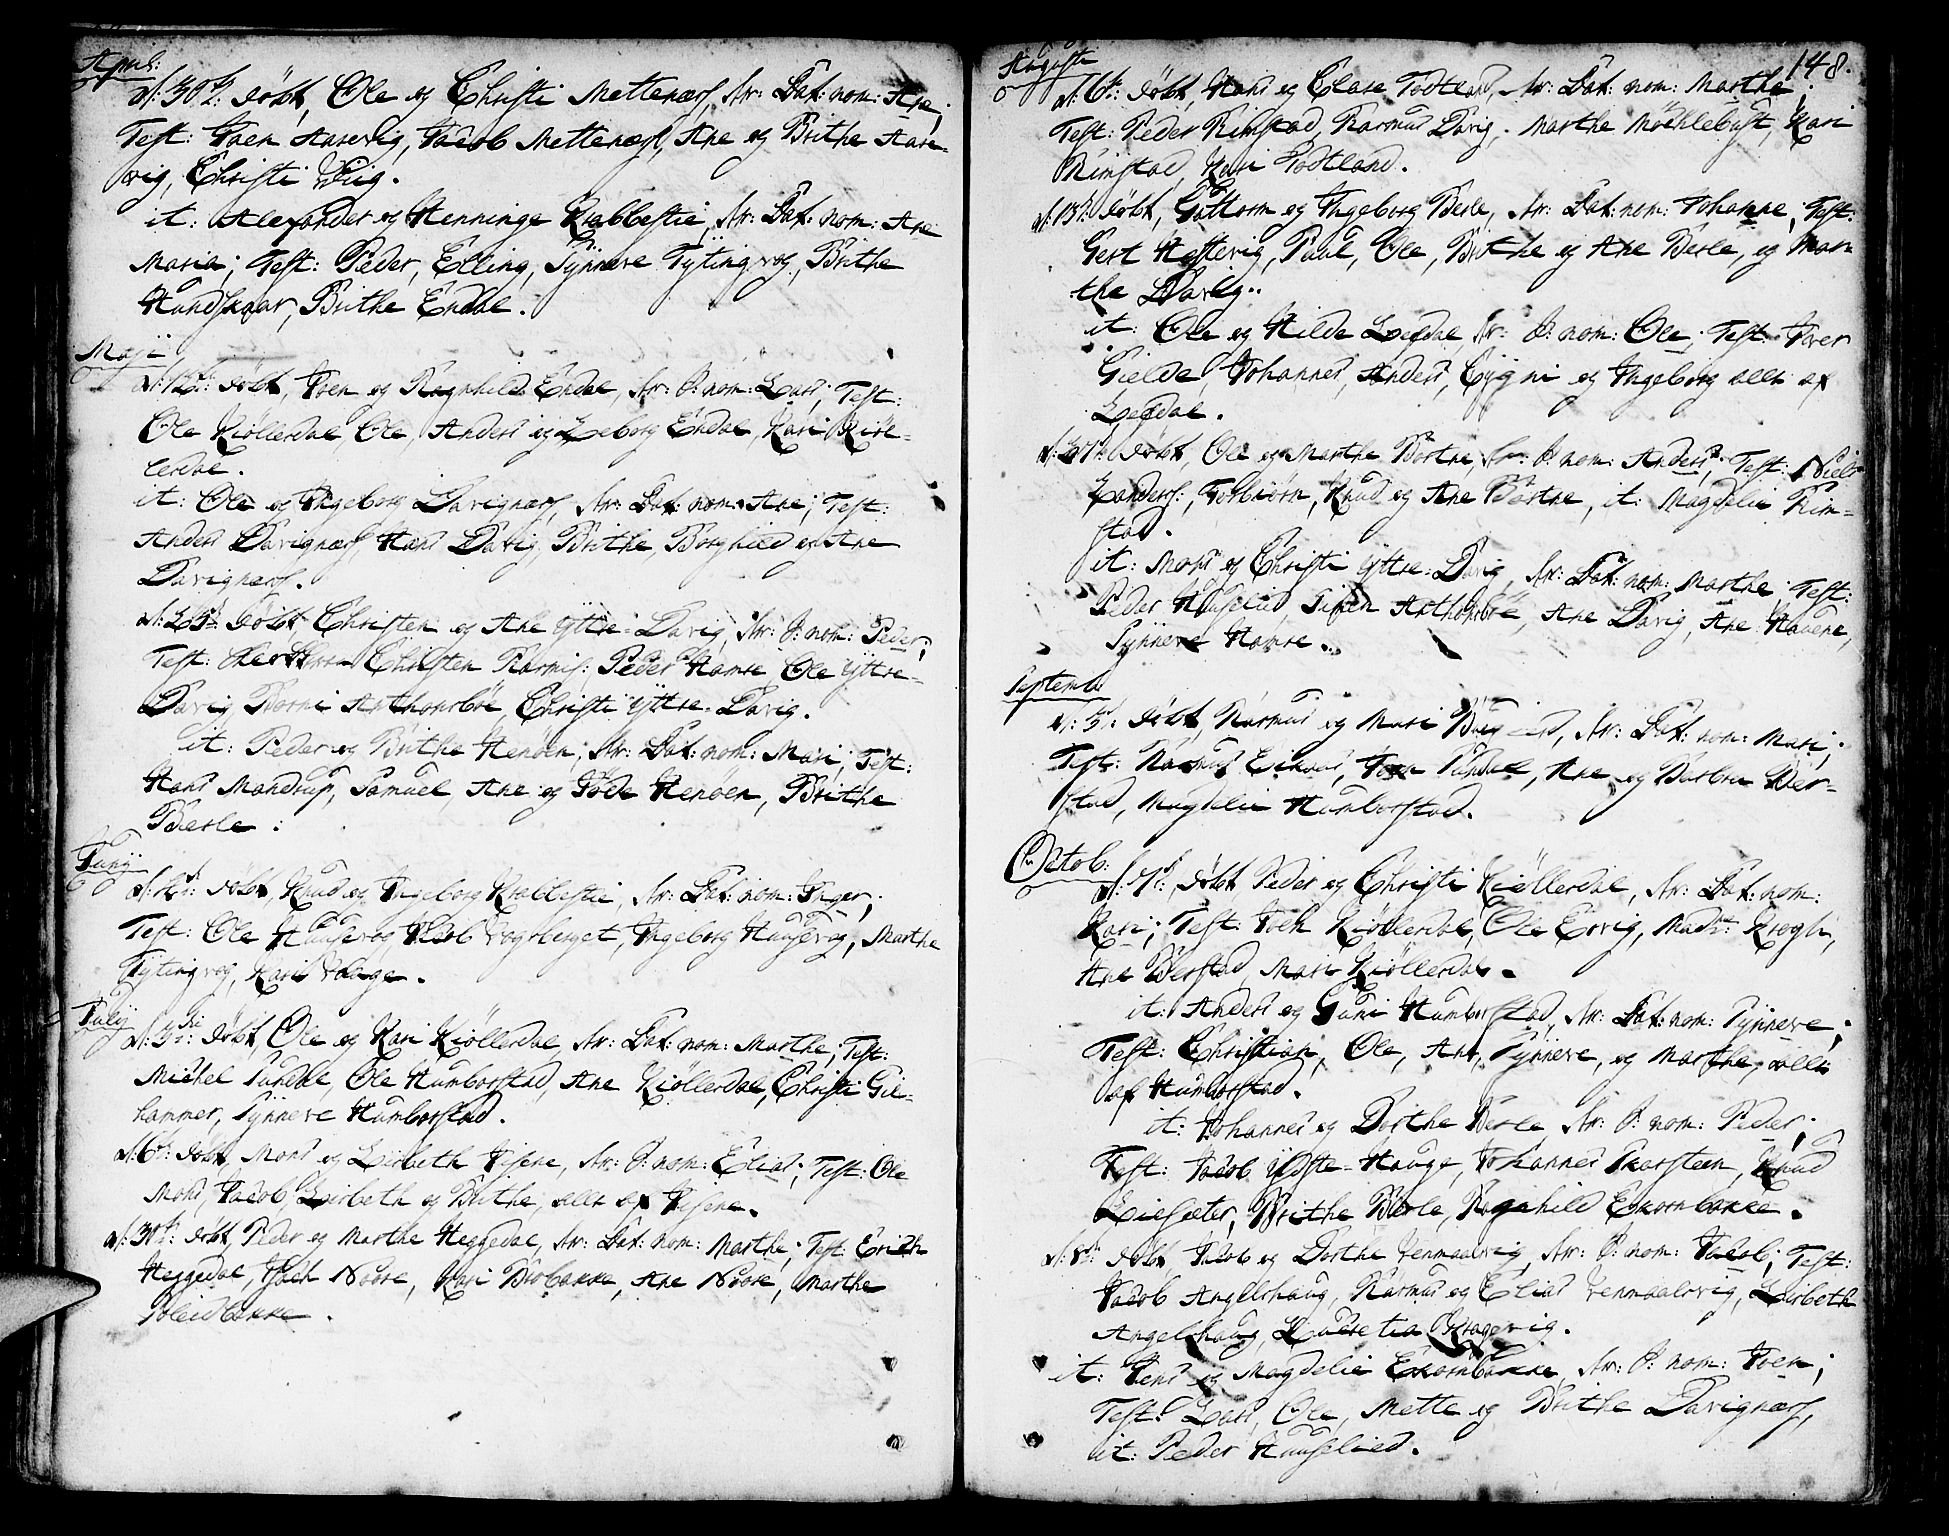 April:
d: 30t: døbt, Ole og Christi Mettenæs, Av: Dat: nom: Ane;
Test: Joen Aasevig, Jacob Mettenæs, Ane og Brithe Aase-
vig, Christi Viig.
it: Alexander og Henninge Krabbestie, Av: Dat: nom: Ane
Maria; Test: Peder, Elling, Synneve Tytingvog, Brithe
Hundskaar, Brithe Endal.
Maji
d: 12t: døbt, Joen og Ragnhild Endal, Av: P: nom: Lars; Test:
Ole Kiøllerdal, Ole, Anders og Leborg Endal, Kari Kiøl-
lerdal.
it: Ole og Ingeborg Davignæs, Av: Dat: nom: Ane; Test:
Anders Davignæs, Hans Davig, Brithe, Borghild og Ane
Davignæs.
d: 25t: døbt Christen og Ane Yttre-Davig, Av: P: nom: Peder;
Test: Christen Rasmis: Peder Hamre, Ole Yttre-
Davig, Borni Anthonsbøe, Christi Yttre-Davig.
it: Peder og Brithe Henøen, Av: Dat: nom: Mari; Test:
Hans Mandrup, Samuel, Ane og Jøde Henøen, Brithe
Berle:
Junij
d: døbt, Knud og Ingeborg Krabbestie, Av: Dat: nom: Inger;
Test: Ole Hausevog, Jacob Vogsberget, Ingeborg Haugsevog, Marthe
Tytingvog, Kari Hauge.
Julij
d: 3di: døbt, Ole og Kari Kiøllerdal, Av: Dat: nom: Marthe; Test:
Michel Sundal, Ole Humborstad, Ane Kiøllerdal, Christi Gil-
hammer, Synneve Humborstad.
d: 6t: døbt, Mons og Lisbeth Viisene, Av: P: nom: Elias; Test: Ole
Mons, Jacob, Lisbeth og Brithe, alle af Viisene.
d: døbt, Peder og Marthe Heggedal, Av: Dat: nom: Marthe; Test: Erich
Heggedal, Isach Noore, Kari Brobakke, Ane Noore, Marthe
Bleidbakke.
148.
Augusti
d: 6t: døbt, Hans og Clare Todtland, Av: Dat: nom: Marthe;
Test: Peder Rimstad, Rasmus Davig, Marthe Mochlebust, Kari
Rimstad, Kari Todtland.
d: 13t: døbt, Guttorm og Ingeborg Berle, Av: Dat: nom: Johanne; Test:
Gert Hestevig, Paul, Ole, Brithe og Ane Berle, og Mar-
the Davig.
it: Ole og Hilde Lefdal, Av: P: nom: Ole; Test: Iver
Gielde, Johannes, Anders, Gygni og Ingeborg alle af
Lefdal.
d: 27t: døbt, Ole og Marthe Bortne, Av: P: nom: Anders; Test: Niels
Landers:, Torbiørn, Knud og Ane Bortne, it: Magdelie Rim-
stad.
it: Mons og Christi Yttre-Davig, Av: Dat: nom: Marthe; Test:
Peder Huuslied, Simen Anthonsbøe, Ane Davig, Ane Haugene,
Synneve Hamre.
Septembr
d: 3t: døbt, Rasmus og Mari, Av: Dat: nom: Mari;
Test: Rasmus, Joen Sundal, Ane og Barbra Ber-
stad, Magdelie Humborstad.
Octob:
d: 1t: døbt Peder og Christi Kiøllerdal, Av: Dat: nom:
Kari; Test: Joen Kiøllerdal, Ole Ervig, Madme Krogh,
Ane Berstad, Mari Kiøllerdal.
it: Anders og Guri Humborstad, Av: Dat: nom: Synneve;
Test: Christian, Ole, Ane, Synneve, og Marthe, alle
af Humborstad.
it: Johannes og Dorthe Berle, Av: P: nom: Peder;
Test: Jacob Ytste-Hauge, Johannes Skarsteen, Knud
Liesæter, Brithe Berle, Ragnhild Ekornbakke.
d: 8t: døbt, Jacob og Dorthe Venmaalvig, Av: P: nom: Jacob; Test:
Jacob Angelshaug, Rasmus og Elias Venmaalvig, Lisbeth
Angelshaug, Lucretia Krogevig.
it: Jens og Magdelie Ekornbakke, Av: P: nom: Joen;
Test: Lars, Ole, Mette og Brithe Davignæs,
it: Peder Huuslied.